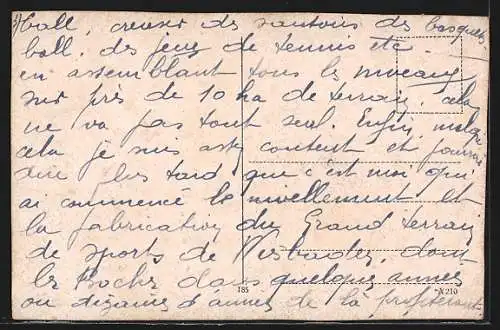 ball, creuser des sautoirs des basquet
ball, des jeux de tennis etc
en assemblant tous les niveaux
sur près de 10 ha de terrain, cela
ne va pas tout seul. Enfin, malgré
cela je suis assez content et pourrai
dire plus tard que c'est moi qui
ai commencé le nivellement et
la fabrication du Grand terrain
de sports de Wiesbaden, dont
les Boches dans quelques années
ou dizaines d'années de là profiteront
185 *A 210